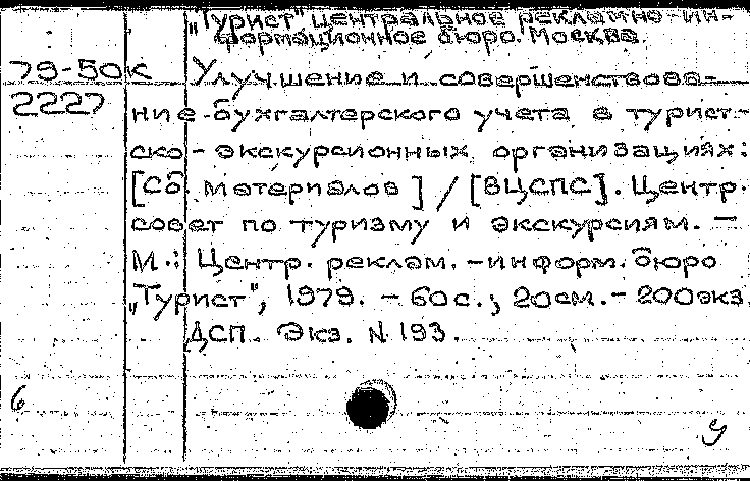 „Турист" центральное рекламно-ин-
формационное бюро. Москва.
79-50к Улучшение и совершенствова-
2227 ние бухгалтерского учета в турист-
ско-экскурсионных организациях:
[Сб. материалов] / [ВЦСПС]. Центр.
совет по туризму и экскурсиям. —
М.: Центр. реклам.-информ. бюро
„Турист", 1979. - 60 с.; 20 см. - 200 экз
ДСП. Экз. N 193.
6
У